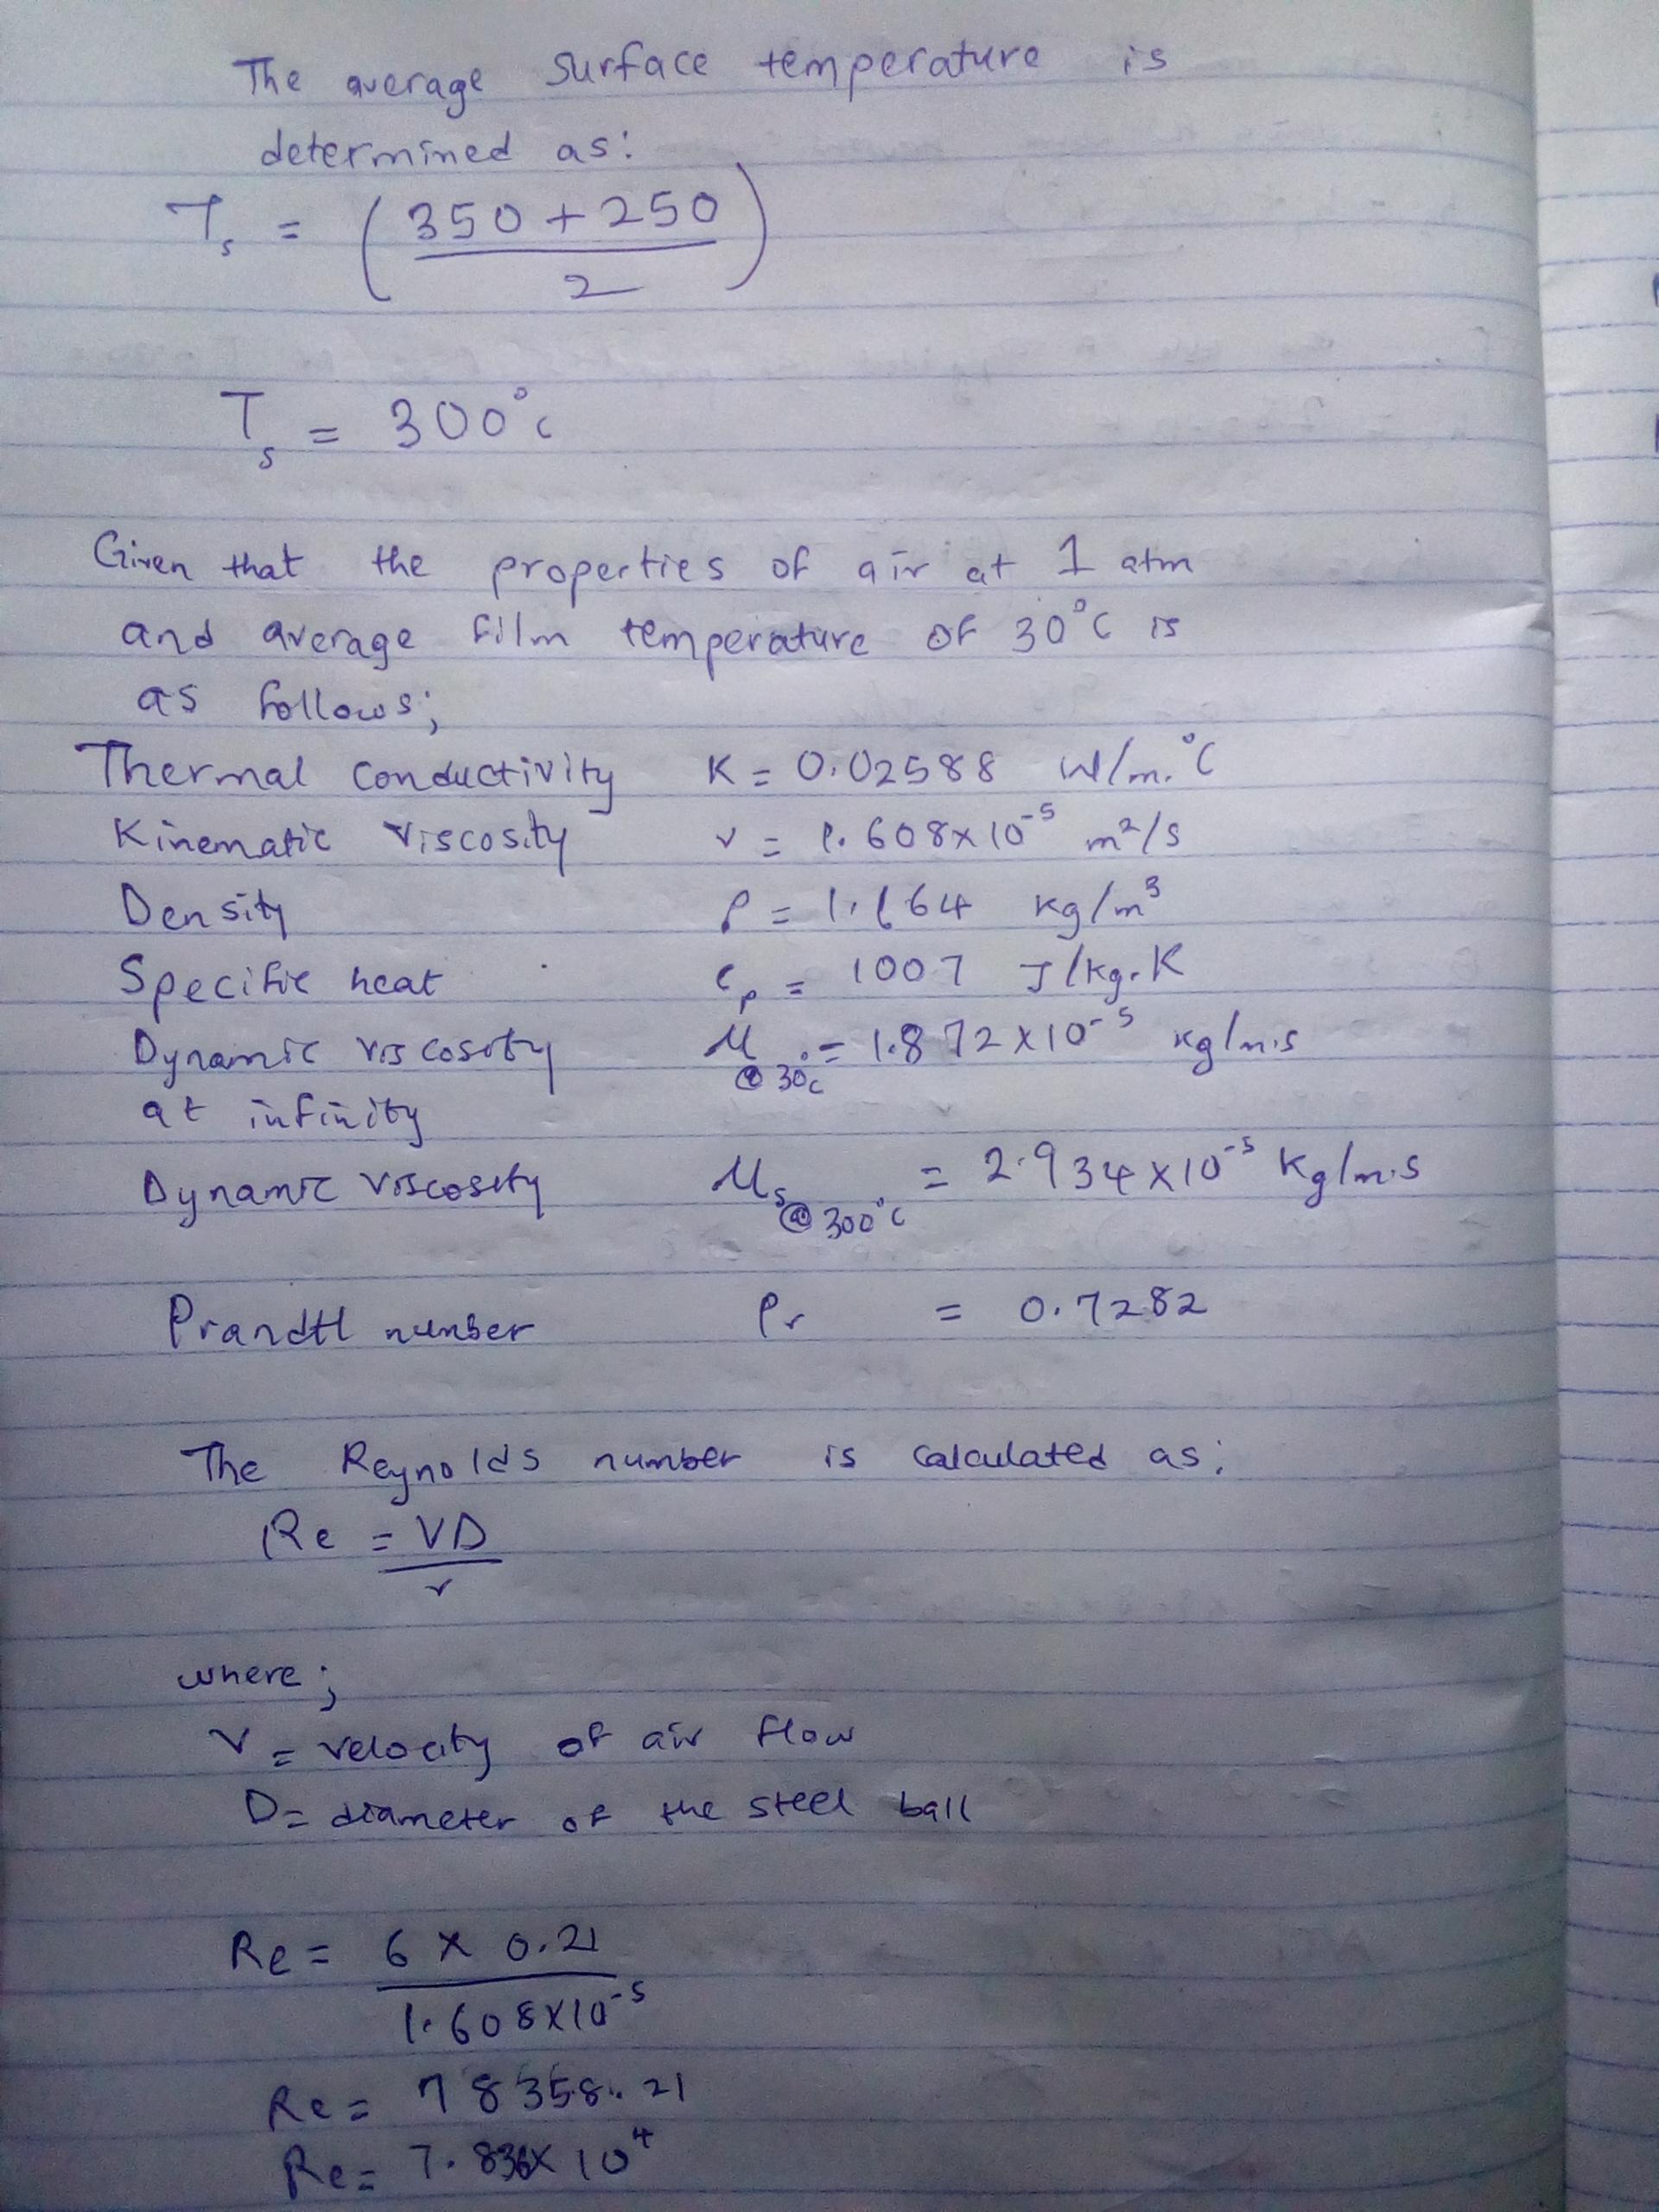 The average surface temperature is
determined as:
Ts = (350 + 250 / 2)
Ts = 300°c
Given that the properties of air at 1 atm
and average film temperature of 30°C is
as follows;
Thermal conductivity K = 0.02588 W/m.°C
Kinematic viscosity v = 1.608x10⁻⁵ m²/s
Density ρ = 1.164 kg/m³
Specific heat cp = 1007 J/kg.K
Dynamic viscosity μ @ 30°c = 1.872x10⁻⁵ kg/m.s
at infinity
Dynamic viscosity μs @ 300°c = 2.934x10⁻⁵ kg/m.s
Prandtl number Pr = 0.7282
The Reynolds number is calculated as;
Re = VD / v
where;
V = velocity of air flow
D = diameter of the steel ball
Re = 6 x 0.21 / 1.608x10⁻⁵
Re = 78358.21
Re = 7.836x10⁴